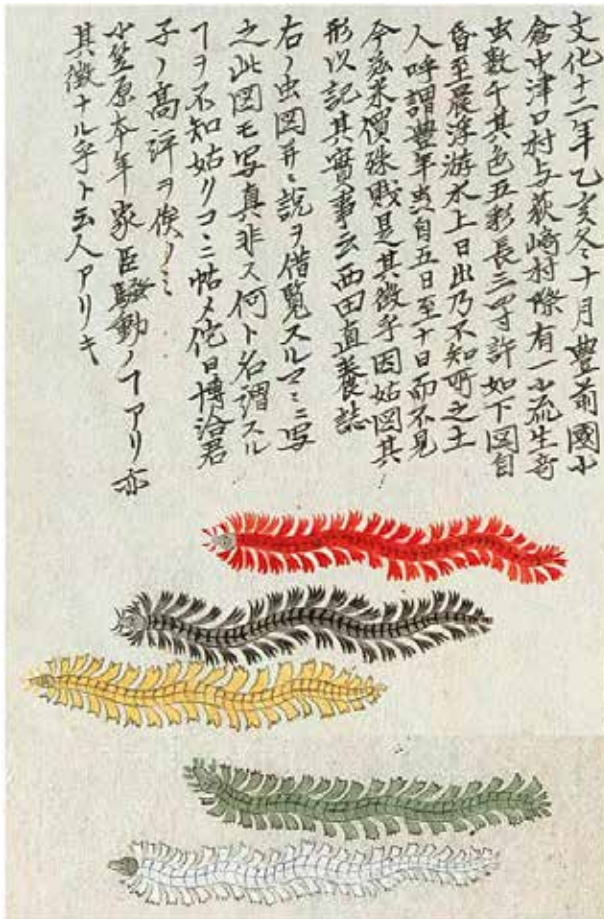 文化十二年乙亥冬十月豊前國小
倉中津口村与荻崎村際有一小流生奇
虫数千其色五彩長三四寸許如下図自
昏至晨浮游水上日出乃不知所之土
人呼謂豊年虫自五日至十日而不見
今茲米價殊賤是其徴乎因姑図其
形以記其實事云西田直養誌
右ノ虫図并ニ説ヲ借覧スルマヽニ写
之此図モ写真非ス何ト名謂スル
ヿヲ不知姑リコヽニ帖メ佗日博洽君
子ノ高評ヲ俟ノミ
小笠原本年家臣騒動ノヿアリ亦
其徴ナル乎ト云人アリキ